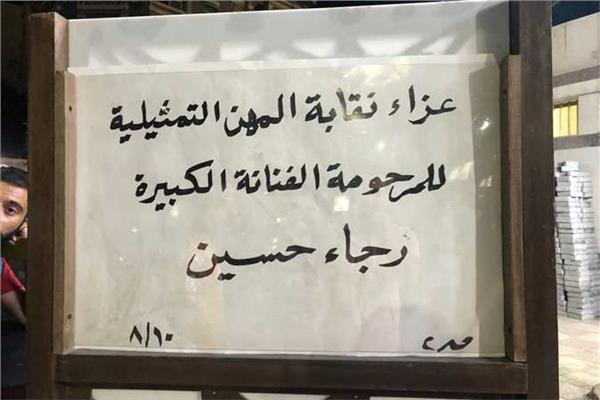 عزاء نقابة المهن التمثيلية
للمرحومة الفنانة الكبيرة
رجاء حسين
٨/١٠